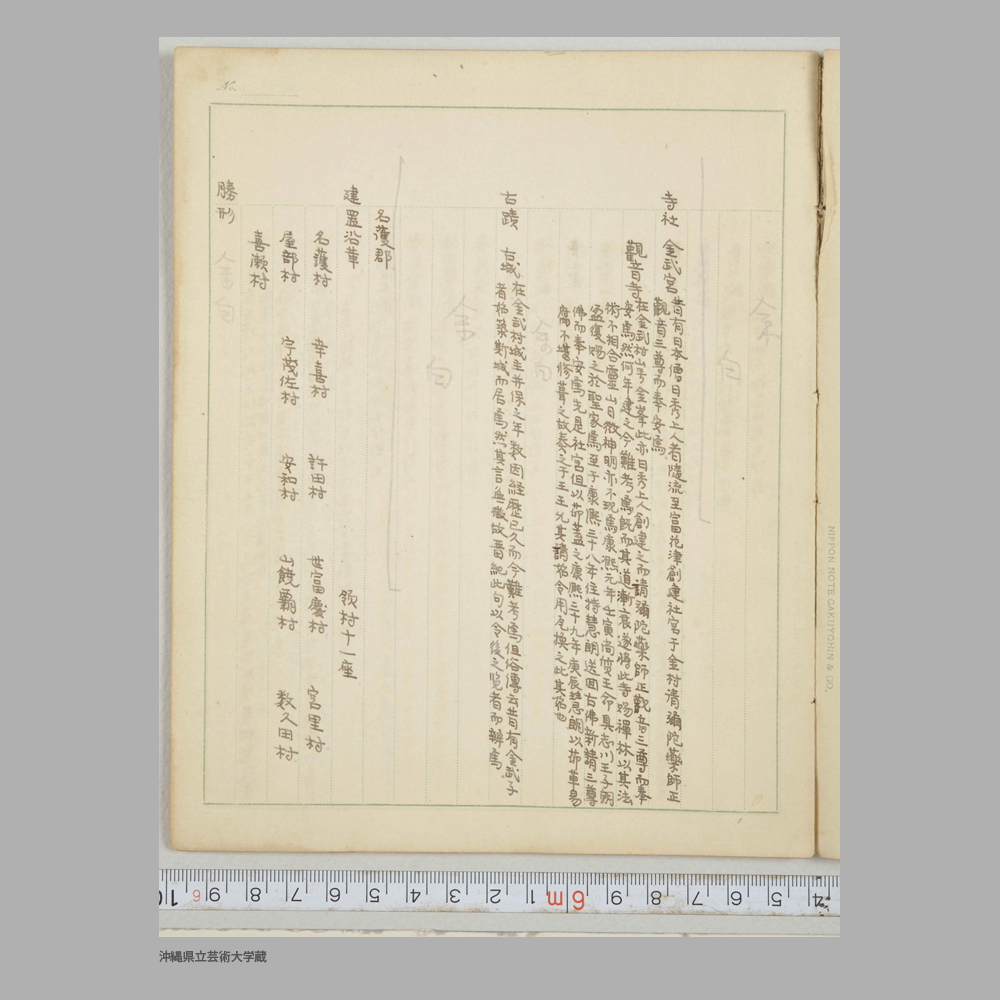 No.
余白
寺社
金武宮 昔有日本僧日秀上人者隨流至富花津創建社宮于金村請彌陀藥師正
觀音三尊而奉安焉
觀音寺 在金武村山号金峯此亦日秀上人創建之而請彌陀藥師正觀音三尊而奉
安焉然何年建之今難考焉既而其道漸衰遂将此寺賜禪林以其法
術不相合靈山日微神明亦不現焉康熙元年壬寅尚質王命具志川王子朝
盈復賜之於聖家焉至于康熙三十八年住持慧朗送回右佛新請三尊
佛而奉安焉先是社宮但以茆蓋之康熙三十九年庚辰慧朗以茆草易
腐不堪修葺之故奏之于王王允其請始令用瓦換之此其始也
余白
古蹟
古城 在金武村城主并保之年数因経歴已久而今難考焉但俗傳云昔有金武子
者始築斯城而居焉然其言無徴故啚紀此句以令後之览者而辦焉
余白
名護郡
建置沿革
領村十一座
名護村 幸喜村 許田村 世冨慶村 宮里村
屋部村 宇茂佐村 安和村 山饒覇村 数久田村
喜瀬村
勝形
余白
NIPPON NOTE GAKUYOHIN & CO.
沖縄県立芸術大学蔵